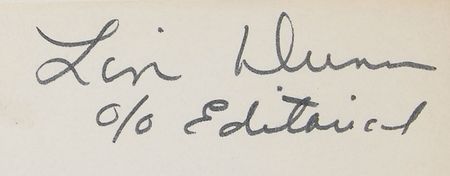 Lin Dunn
c/o Editorial